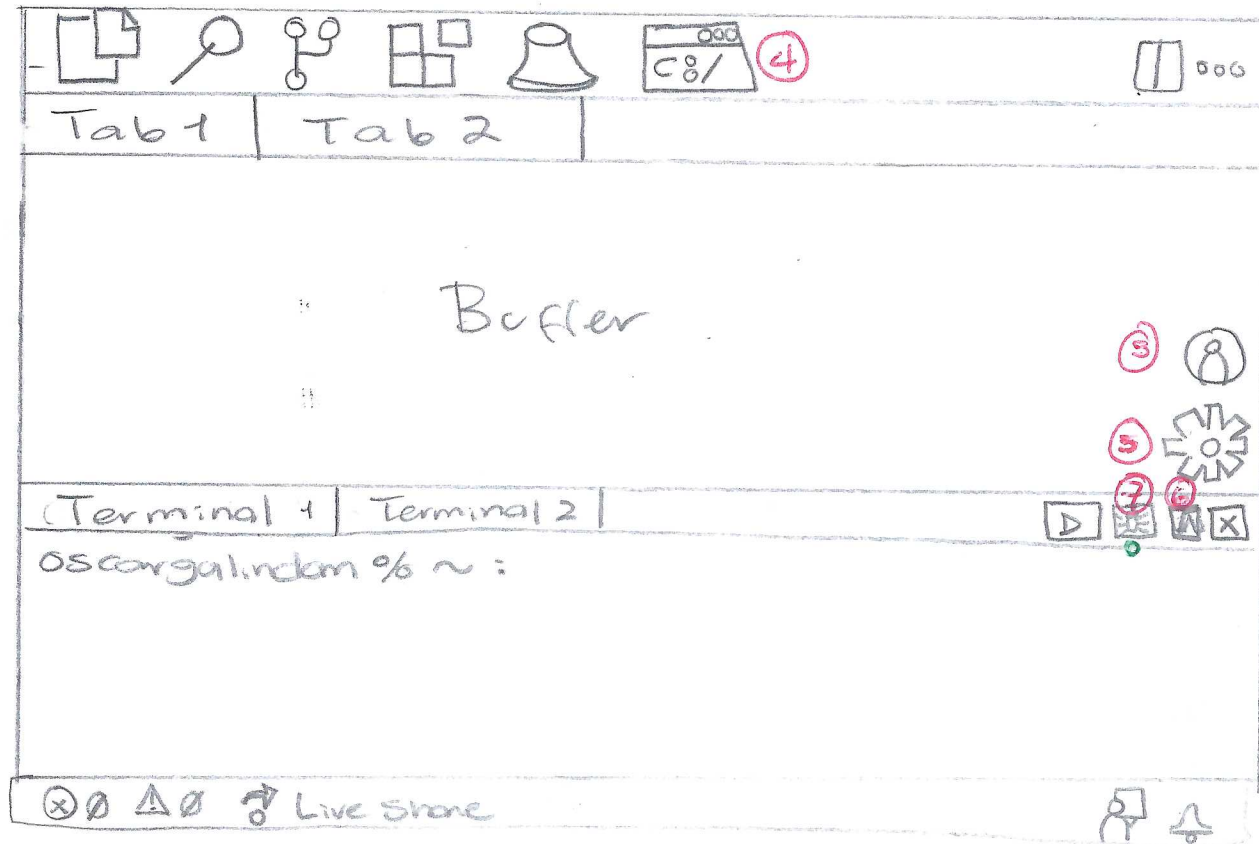 C:/ 4
Tab 1 Tab 2
Buffer
3
5
7 6
Terminal 1 Terminal 2 X
oscargalindom % ~ :
ⓧ Ø ⚠ Ø Live Share